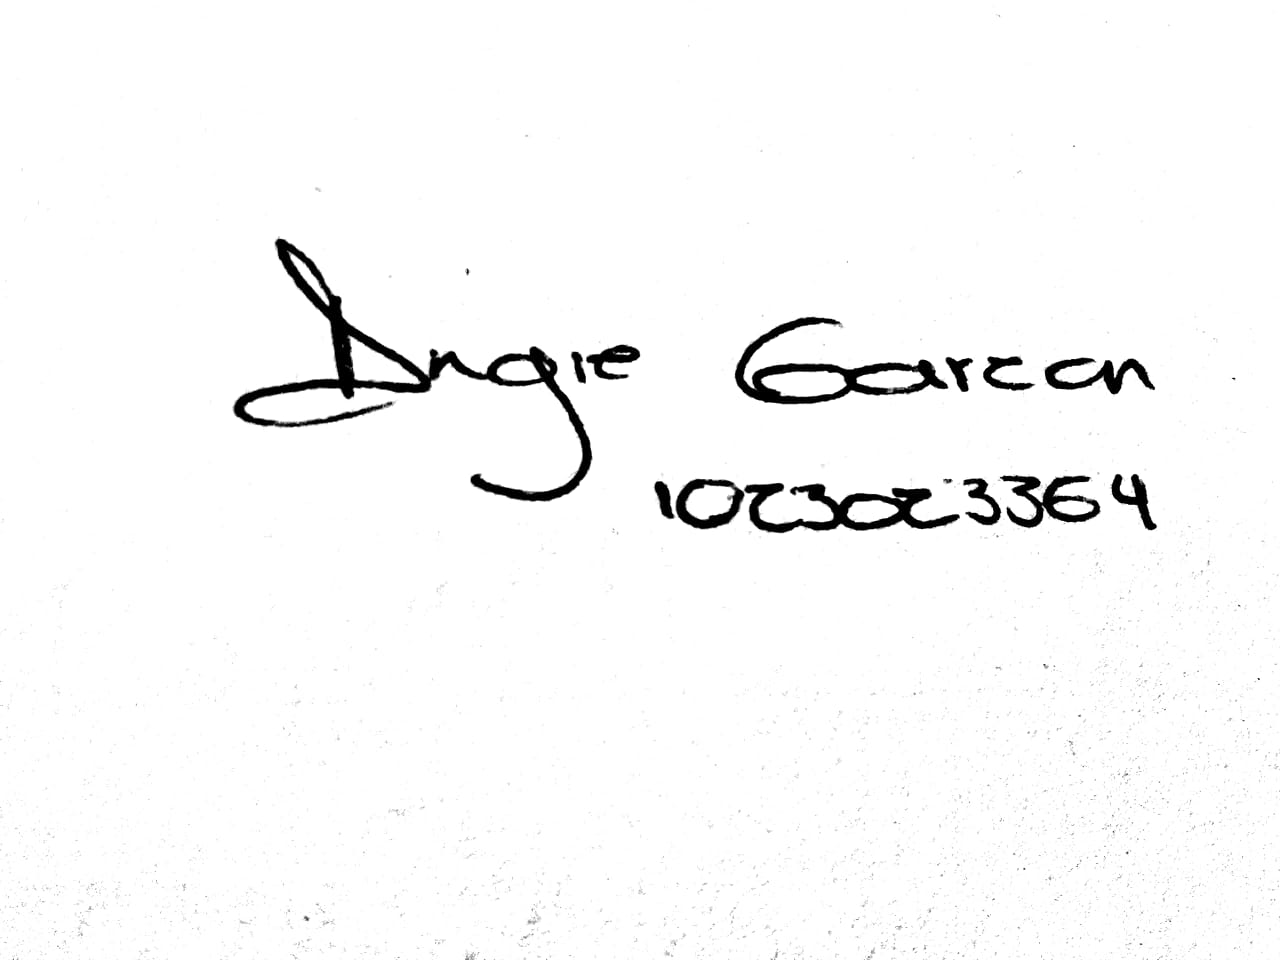 Angie Garzon
1023023364